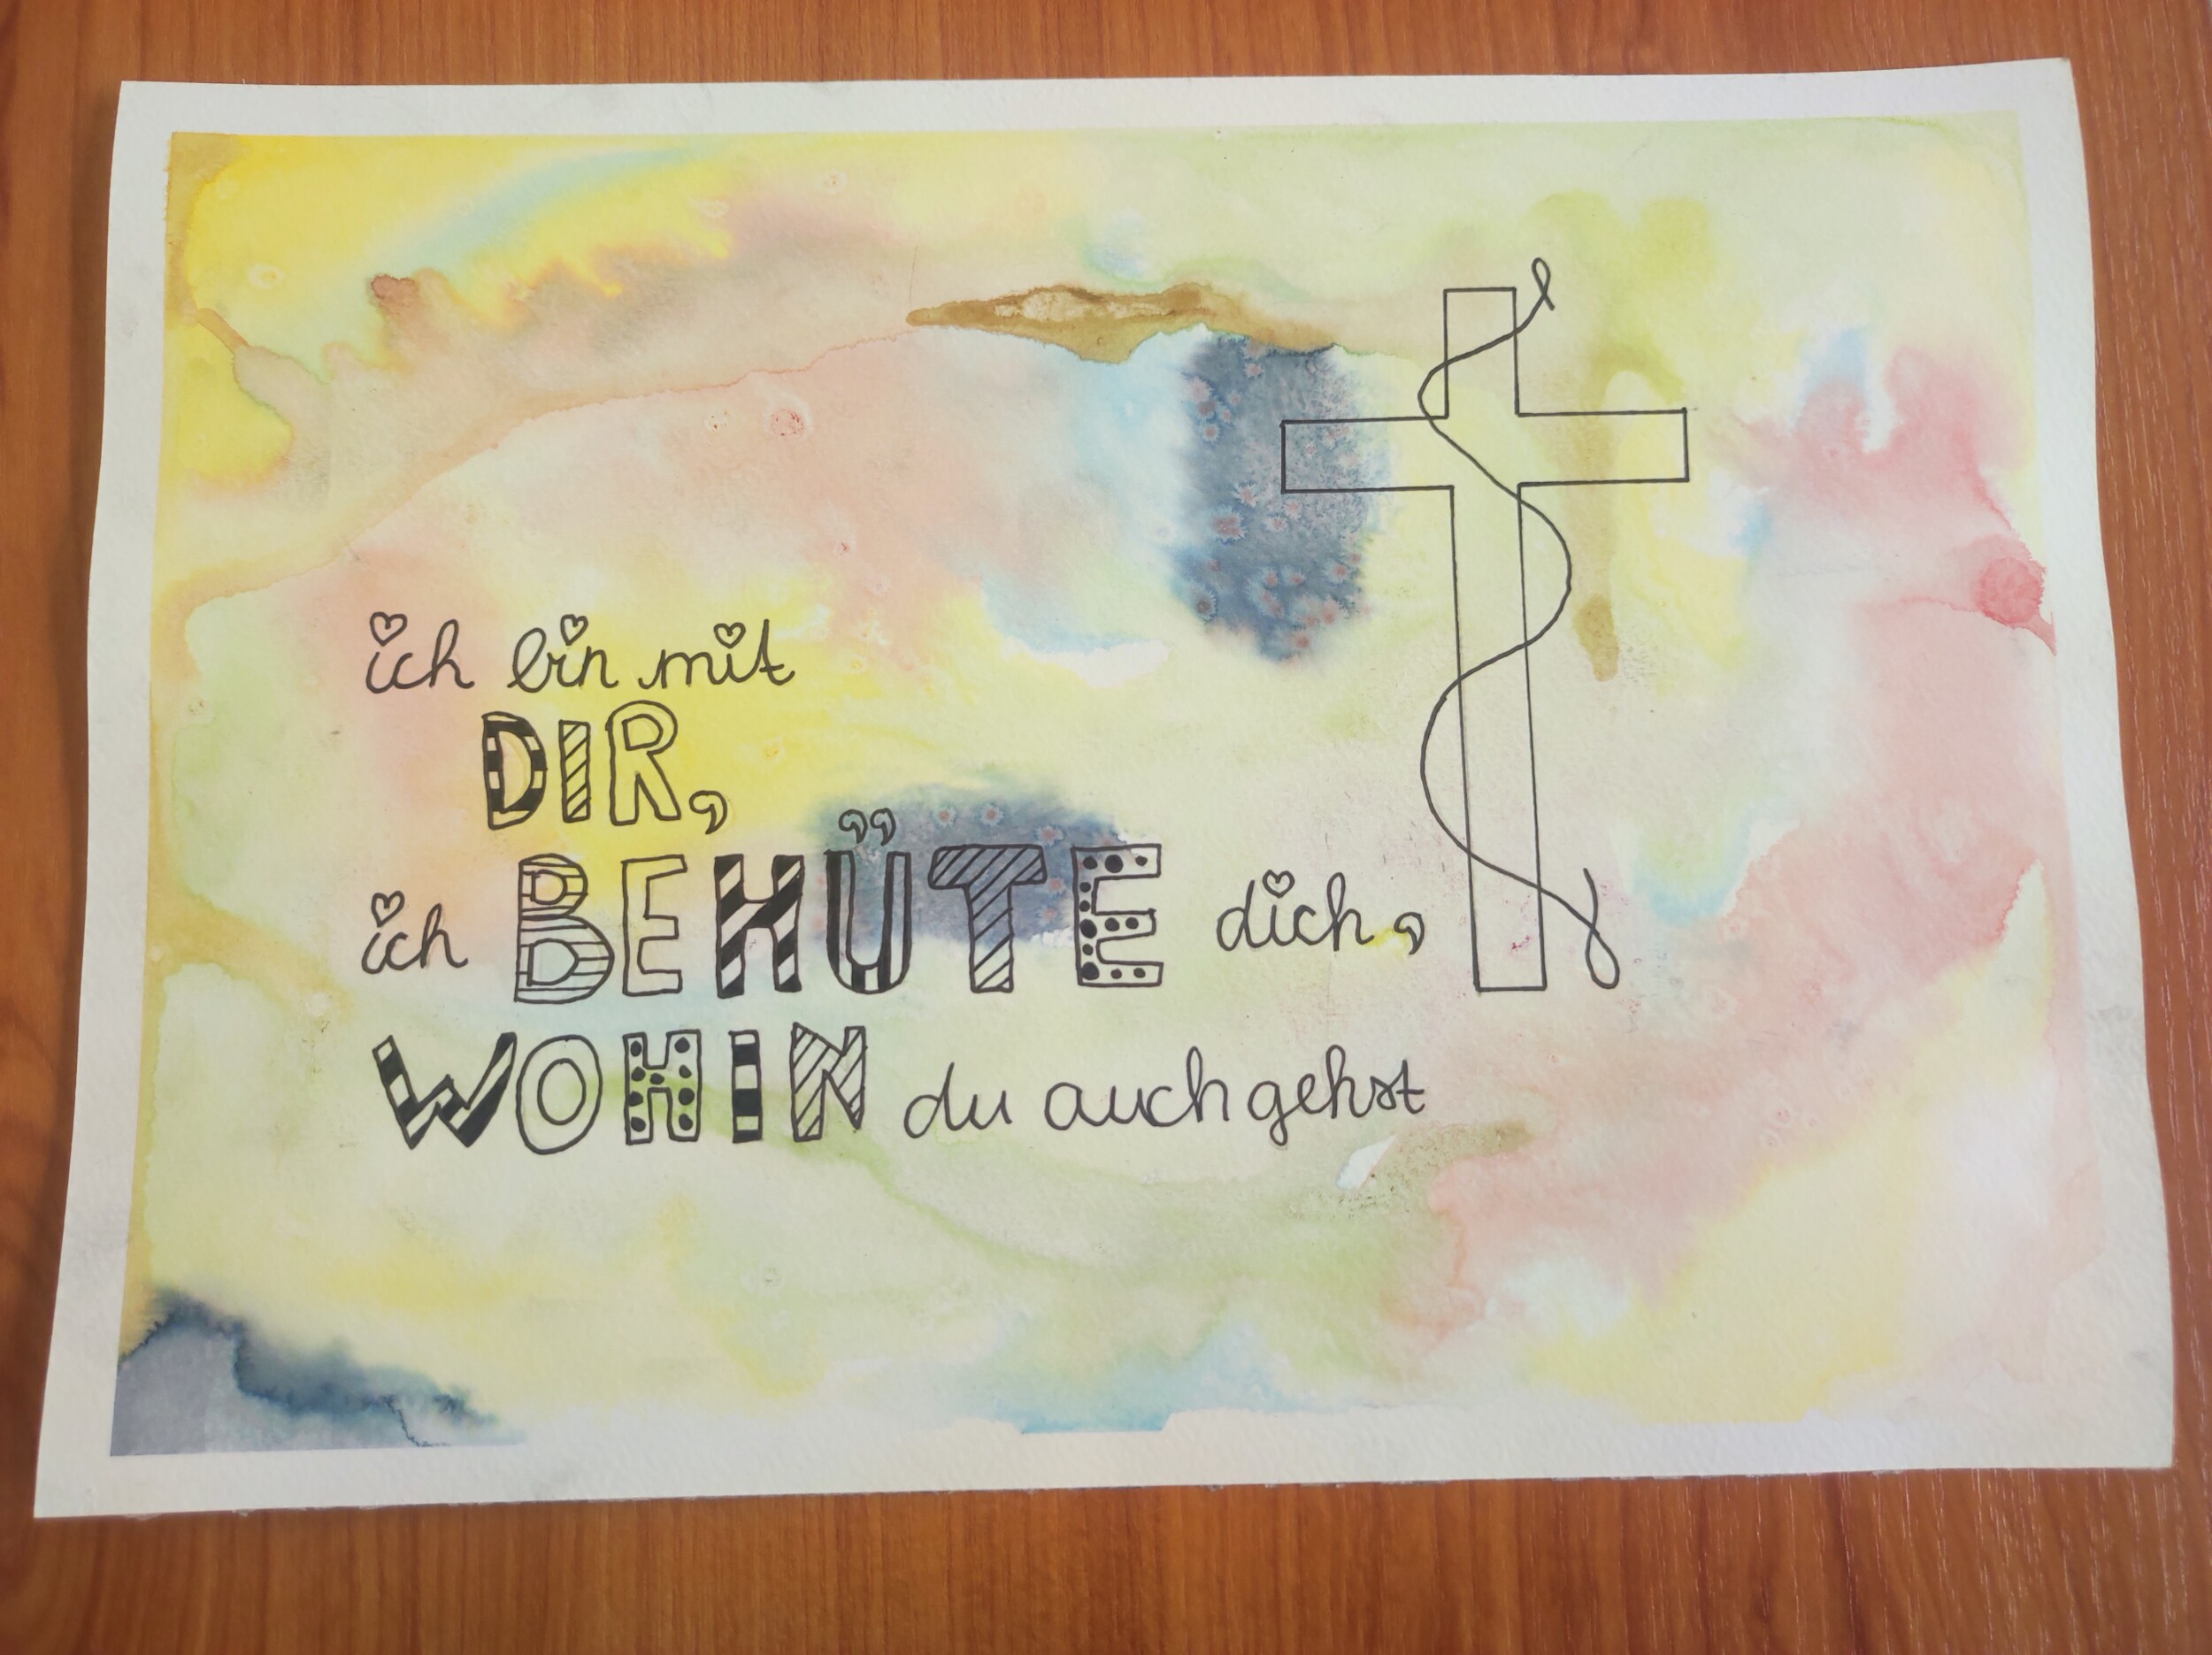 ich bin mit
DIR,
ich BEHÜTE dich,
WOHIN du auch gehst